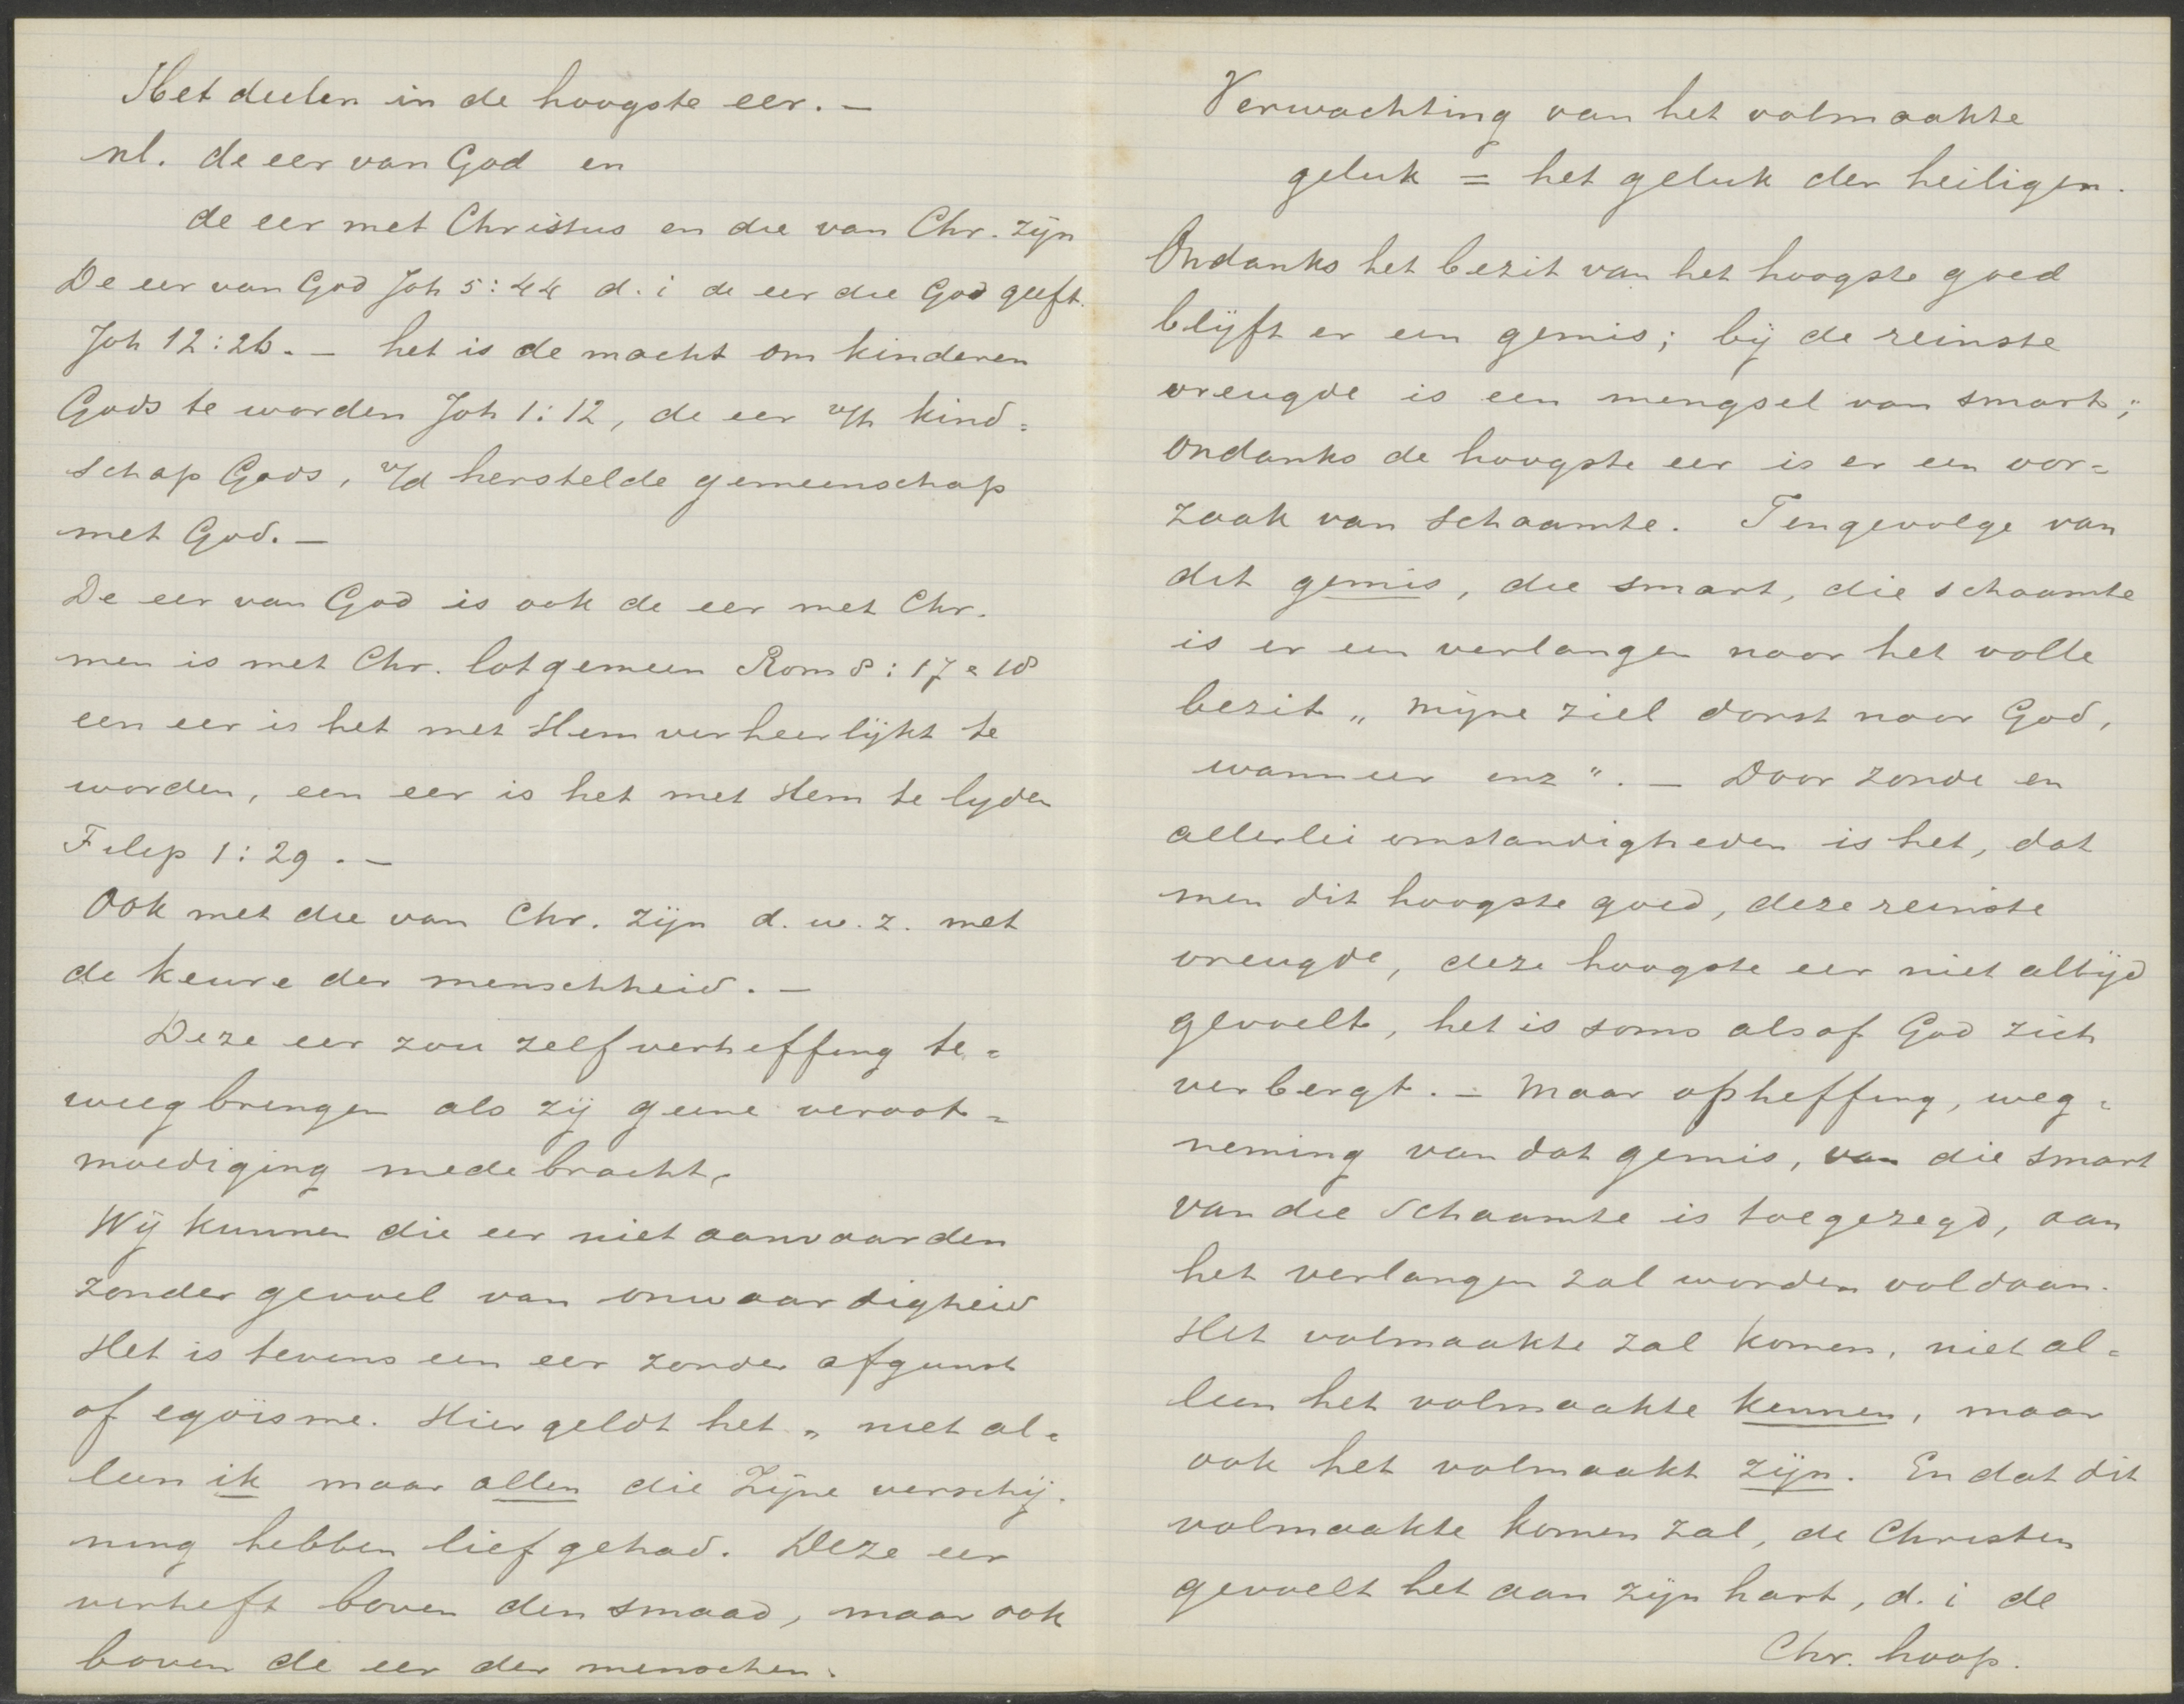 Het deelen in de hoogste eer. —
nl. de eer van God en
de eer met Christus en die van Chr. zijn
De eer van God Joh 5:44 d. i de eer die God geeft.
Joh 12:26. — het is de macht om kinderen
Gods te worden Joh 1:12, de eer v/h kind=
schap Gods, v/d herstelde gemeenschap
met God. —
De eer van God is ook de eer met Chr.
men is met Chr. lotgemeen Rom 8:17 = 18
een eer is het met Hem verheerlijkt te
worden, een eer is het met Hem te lyden
Filip 1:29. —
Ook met die van Chr. zijn d. w. z. met
de keure der menschheid. —
Deze eer zou zelfverheffing te=
weegbrengen als zij geene veroot=
moediging medebracht.
Wij kunnen die eer niet aanvaarden
zonder gevoel van onwaardigheid
Het is tevens een eer zonder afgunst
of egoïsme. Hier geldt het „ niet al=
leen ik maar allen die Zijne verschij=
ning hebben lief gehad. Deze eer
verheft boven den smaad, maar ook
boven de eer der menschen.
Verwachting van het volmaakte
geluk = het geluk der heiligen.
Ondanks het bezit van het hoogste goed
blijft er een gemis; bij de reinste
vreugde is een mengsel van smart;
ondanks de hoogste eer is er een oor=
zaak van schaamte. Tengevolge van
dit gemis, die smart, die schaamte
is er een verlangen naar het volle
bezit „ mijne ziel dorst naar God,
wanneer enz ". — Door zonde en
allerlei omstandigheden is het, dat
men dit hoogste goed, deze reinste
vreugde, deze hoogste eer niet altijd
gevoelt, het is soms alsof God zich
verbergt. — Maar opheffing, weg=
neming van dat gemis, van die smart
van die schaamte is toegezegd, aan
het verlangen zal worden voldaan.
Het volmaakte zal komen, niet al=
leen het volmaakte kennen, maar
ook het volmaakt zijn. En dat dit
volmaakte komen zal, de Christen
gevoelt het aan zijn hart, d. i de
Chr. hoop.